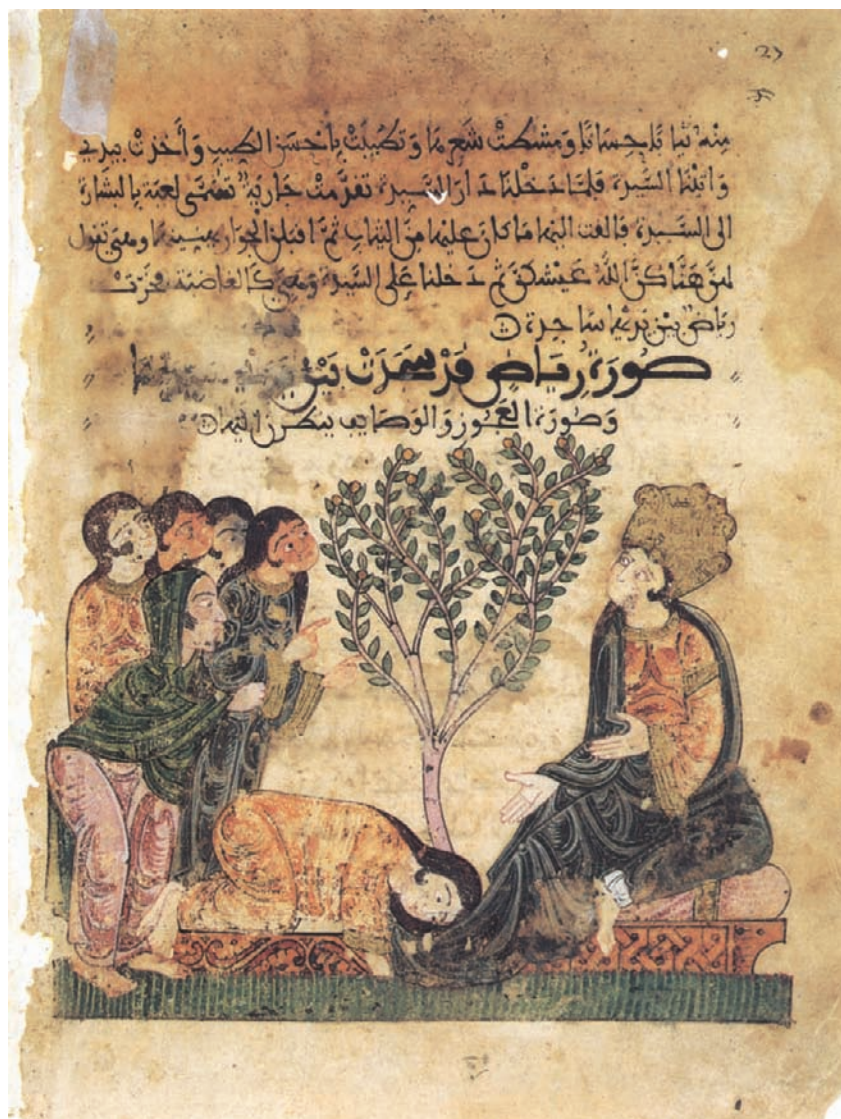 منه ثيابًا حسانًا ومشطت شعرها وتطيبت باحسن الطيب واخذت بيدي
واتينا السيدة فلما دخلنا دار السيدة تقدمت جارية تسمى لعبة بالبشارة
الى السيدة فالقت اليها ما كان عليها من الثياب ثم اقبلن الجوار يهنينها وهي تقول
لهن هناكن الله عيشكن ثم دخلنا على السيدة وهي كالغاضبة فخرت
رياض بين يديها ساجدة
صورة رياض قد سجدت بين
وصورة العجوز والوصايف ينظرن اليها